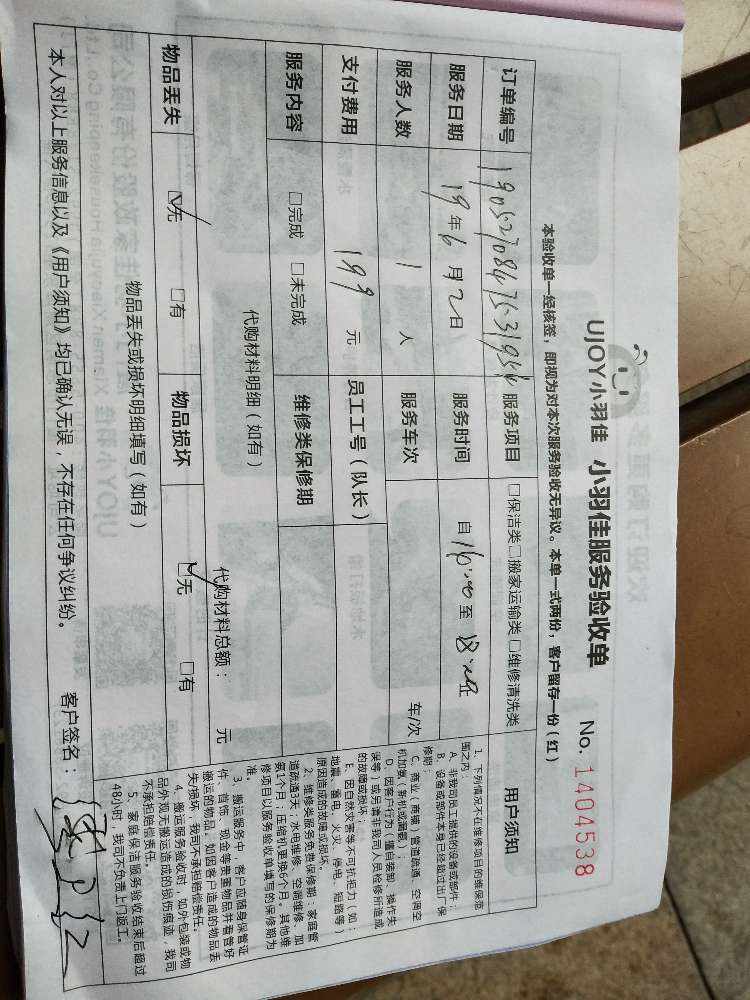 UJOY小羽佳 小羽佳服务验收单 No. 1404538
本验收单一经核签，即视为对本次服务验收无异议。本单一式两份，客户留存一份（红）
订单编号 服务项目 □保洁类□搬家运输类□维修清洗类 用户须知
服务日期 19年6月2日 服务时间 自16:00至
服务人数 1 人 服务车次 车/次
支付费用 199 元 员工工号（队长）
服务内容 □完成 □未完成 维修类保修期
代购材料明细（如有）
代购材料总额： 元
物品丢失 ☑无 □有 物品损坏 ☑无 □有
物品丢失或损坏明细填写（如有）
本人对以上服务信息以及《用户须知》均已确认无误，不存在任何争议纠纷。 客户签名：
1、下列情况不在维修项目的维保范
围之内：
A、非我司员工提供的设备或部件；
B、设备或部件本身已经超过出厂保
修期；
C、商业（商铺）管道疏通、空调空
机加氟（新机或漏氟）；
D、因客户行为（擅自装卸、操作失
误等）或另请非我司人员检修所造成
的故障或损坏；
E、因自然灾害等不可抗拒力（如：
地震、雷电、火灾、停电、短路等）
原因造成的故障或损坏。
2、维修类服务免费保修期：家庭管
道疏通3天；水电维修、空调维修、加
氨1个月；压缩机更换6个月。其他维
修项目以服务验收单填写的保修期为
准。
3、搬运服务中，客户应随身保管证
件、首饰、现金等贵重物品并看管好
搬运的物品，如因客户造成的物品丢
失/损坏，我司不承担赔偿责任。
4、搬运服务验收时，如外包装或物
品外观无搬运造成的损伤痕迹，我司
不承担赔偿责任。
5、家庭保洁服务验收结束后超过
48小时，我司不负责上门返工。